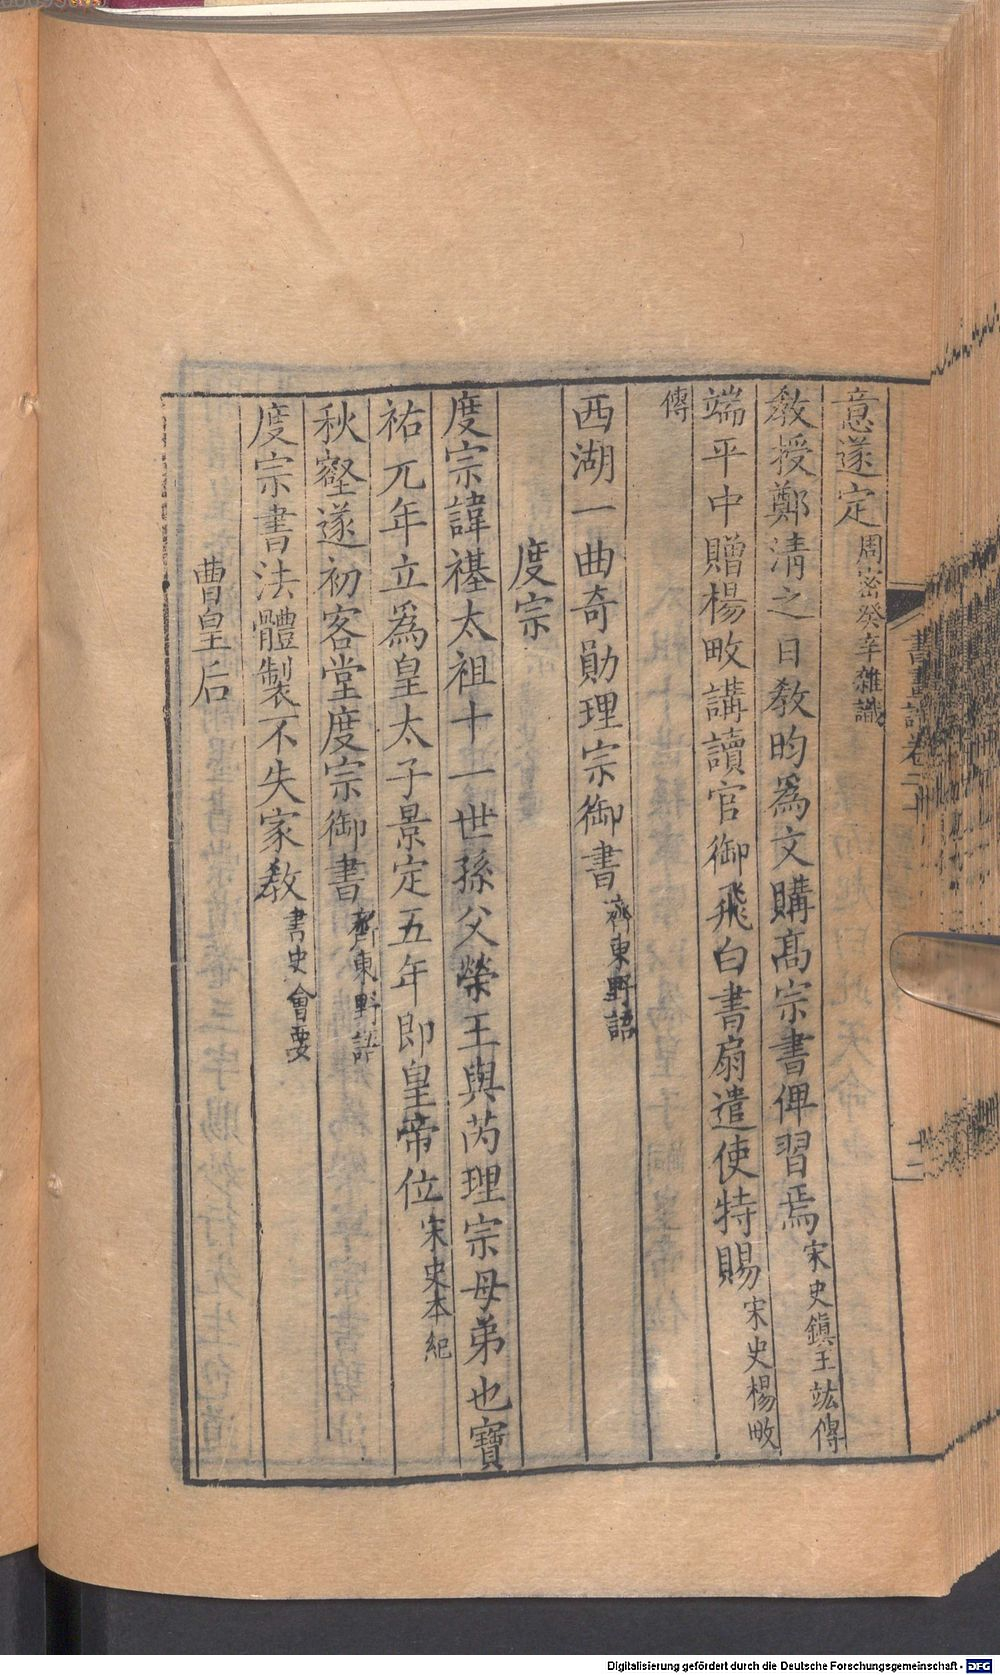 意遂定周密癸辛雜識
教授鄭清之日教昀爲文購髙宗書俾習焉宋史鎭王竑傳
端平中贈楊畋講讀官御飛白書扇遣使特賜宋史楊畋
傳
西湖一曲奇勛理宗御書齊東野語
度宗
度宗諱禥太祖十一世孫父榮王與芮理宗母弟也寶
祐元年立爲皇太子景定五年即皇帝位宋史本紀
秋壑遂初客堂度宗御書齊東野語
度宗書法體製不失家教書史會要
曹皇后
Digitalisierung gefördert durch die Deutsche Forschungsgemeinschaft - DFG